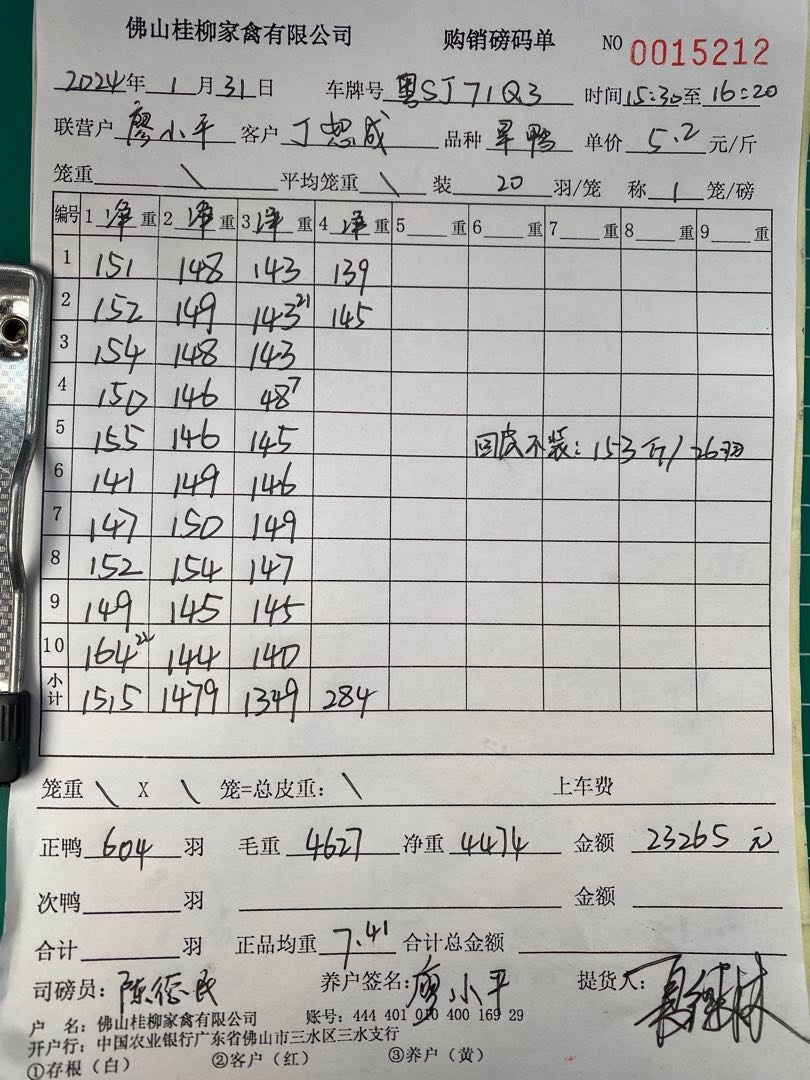 佛山桂柳家禽有限公司 购销磅码单 NO 0015212
2024年 1月31日 车牌号 粤SJ71Q3 时间15:30至16:20
联营户 廖小平 客户 丁 成 品种 旱鸭 单价 5.2 元/斤
笼重 \ 平均笼重 \ 装 20 羽/笼 称 1 笼/磅
编号 1 净 重 2 净 重 3 净 重 4 净 重 5 重 6 重 7 重 8 重 9 重
1 151 148 143 139
2 152 149 143 21 145
3 154 148 143
4 150 146 48 7
5 155 146 145 回皮不装:153斤/26羽
6 141 149 146
7 147 150 149
8 152 154 147
9 149 145 145
10 164 22 144 140
小计 1515 1479 1349 284
笼重 \ X \ 笼=总皮重: \ 上车费
正鸭 604 羽 毛重 4627 净重 4474 金额 23265 元
次鸭 羽 金额
合计 羽 正品均重 7.41 合计总金额
司磅员:陈德民 养户签名:廖小平 提货人:
户 名:佛山桂柳家禽有限公司 账号:444 401 010 400 169 29
开户行:中国农业银行广东省佛山市三水区三水支行
①存根(白) ②客户(红) ③养户(黄)